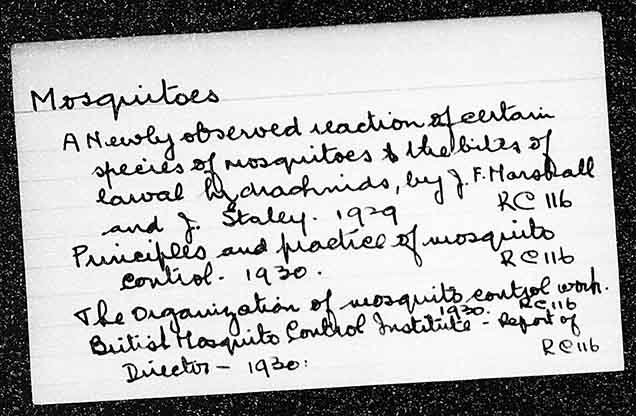 Mosquitoes
A Newly observed reaction of certain
species of mosquitoes to the bites of
larval hydrachnids, by J. F. Marshall
and J. Staley. 1929 RC 116
Principles and practice of mosquito
control. 1930. RC 116
The Organization of mosquito control work.
1930. RC 116
British Mosquito Control Institute - Report of
Director - 1930: RC 116